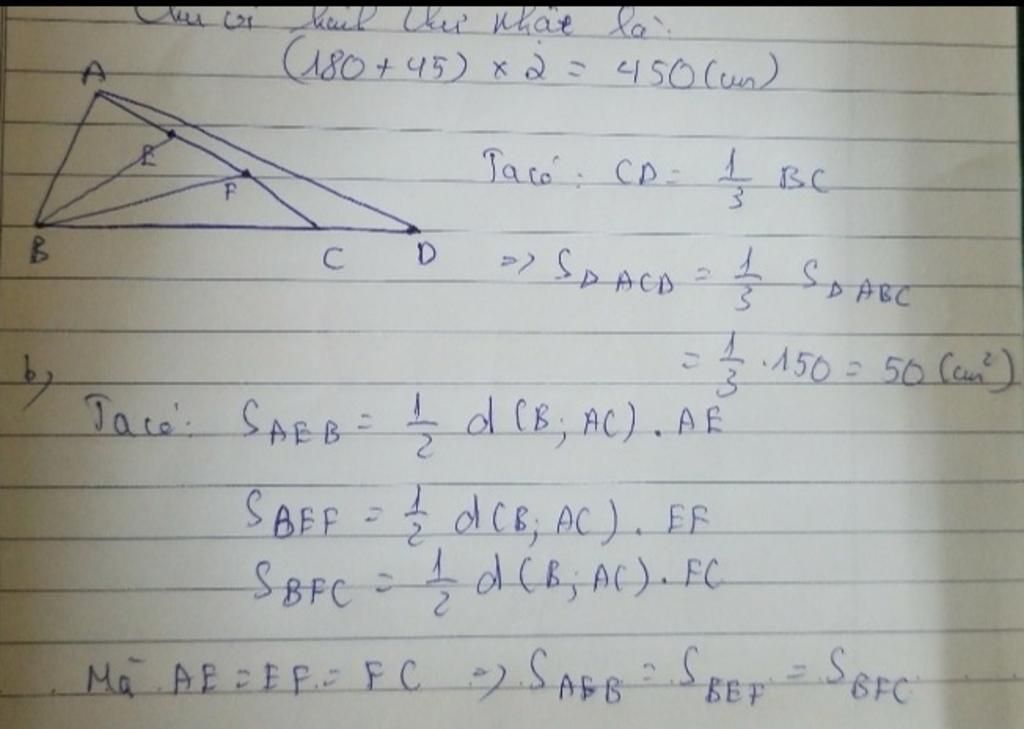 Chu vi hình chữ nhật là:
(180 + 45) × 2 = 450 (cm)
A
E
F
B C D
Ta có: CD = 1/3 BC
=> S_Δ ACD = 1/3 S_Δ ABC
= 1/3 . 150 = 50 (cm²)
b,
Ta có: S_AEB = 1/2 d(B; AC) . AE
S_BEF = 1/2 d(B; AC) . EF
S_BFC = 1/2 d(B; AC) . FC
Mà AE = EF = FC => S_AEB = S_BEF = S_BFC